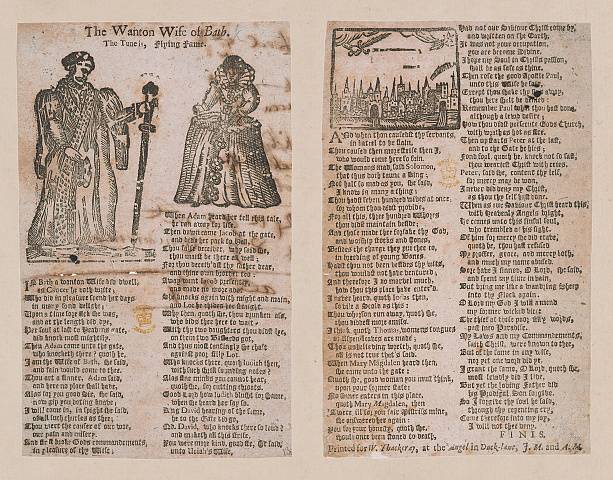 The Wanton Wife of Bath.
The Tune is, Flying Fame.
IN Bath a Wanton Wife did dwell,
as Chaucer he doth write;
Who did in pleasure spend her days
in many fond delight;
Upon a time sore sick she was,
and at the length did dye,
Her soul at last to Heavens gate,
did knock most mightily.
Then Adam came unto the gate,
who knocketh there? quoth he,
I am the Wife of Bath, she said,
and fain would come to thee.
Thou art a sinner, Adam said,
and here no place shall have,
Alas for you good Sir, she said,
now gip you doting knave
I will come in, in spight she said,
of all such churles as thee;
Thou wert the causer of our woe,
our pain and misery.
And first broke Gods commandments,
in pleasure of thy Wife;
When Adam heard her tell this tale,
he ran away for life.
Then down came Jacob at the gate,
and bids her pack to Hell,
Thou false deceiver, why said she,
thou maist be there as well;
For thou deceiv'dst thy father dear,
and thine own brother too
Away went Jacob presently,
and made no more ado
She knocks again with might and main,
and Lot
Why then, quoth she, thou drunken ass,
who bids thee here to wait;
With thy two daughters thou didst lye,
on them two Bastards got.
And thus most tauntingly she chaft
against poor silly Lot.
Who knocks there, quoth Judith then,
with such shrill sounding notes?
Alas fine minks you cannot hear,
quoth she, for cutting throats.
Good Lord how Judith blusht for shame,
when she heard her say so.
King David hearing of the same,
he to the Gate did go,
Qd. David, who knocks there so loud
and maketh all this strife.
You were more kind, good Sir, she said,
unto Uriah's Wife,
ANd when thou causedst thy servants,
in battel to be slain,
Thou caused then more strife then I,
who would come here so fain.
The Womans mad, said Solomon,
that thus doth taunt a King;
Not half so mad as you, she said,
I know in many a thing;
Thou hadst seven hundred wives at once,
for whom thou didst provide,
For all this, three hundred Whores
thou didst maintain beside:
And those made thee forsake thy God,
and worship stocks and stones,
Besides the charge they put thee to
in breeding of young bones.
Hadst thou not been besides thy wits,
thou wouldst not have ventured;
And therefore I do marvel much,
how thou this place hast enter'd.
I never heard, quoth Jonas then,
so vile a scold as this;
Thou whoreson run-away, quoth she,
thou diddest more amiss.
I think, quoth Thomas, womens tongues
of Aspen-leaves are made;
Thou unbelieving wretch, quoth she,
all is not true that's said.
When Mary Magdalen heard then,
she came unto the gate;
Quoth she, good woman you must think,
upon your former state
No sinner enters in this place,
quoth Mary Magdalen, then
'Twere ill for you fair mistriss mine,
she answered her again:
You for your honesty, quoth she,
should once been stoned to death,
Had not our Saviour Christ come by,
and written on the Earth.
It was not your occupation,
you are become Divine.
I hope my Soul in Christs passion,
shall be as safe as thine.
Then rose the good Apostle Paul;
unto this Wife he said,
Except thou shake thy sins away,
thou here shalt be denied:
Remember Paul what thou hast done,
although a lewd desire;
How thou didst persecute Gods Church,
with wrath as hot as fire.
Then up starts Peter at the last,
and to the Gate he hies;
Fond soul, quoth he, knock not so fast,
thou weariest Christ with cries.
Peter, said she, content thy self,
for mercy may be won,
I never did deny my Christ,
as thou thy self hast done.
When as our Saviour Christ heard this,
with heavenly Angels bright,
he comes unto this sinful soul,
who trembled at his sight.
Of him for mercy she did crave,
quoth he, thou hast refused
My proffer, grace, and mercy both,
and much my name abused.
Sore have I sinned, O Lord, she said,
and spent my time in vain,
But bring me like a wandring sheep
into thy Flock again.
O Lord my God I will amend
my former wicked vice:
The thief at these poor silly words,
past into Paradise.
My Laws and my Commandements,
saith Christ, were known to thee,
But of the same in any wise,
not yet one word did ye.
I grant the same, O Lord, quoth she,
most lewdly did I live,
But yet the loving Father did
his Prodigal Son forgive.
So I forgive thy soul he said,
through thy repenting cry,
Come therefore into my joy,
I will not thee deny.
FINIS.
Printed for W. Thackeray, at the Angel in Duck-lane, J. M. and A. M.